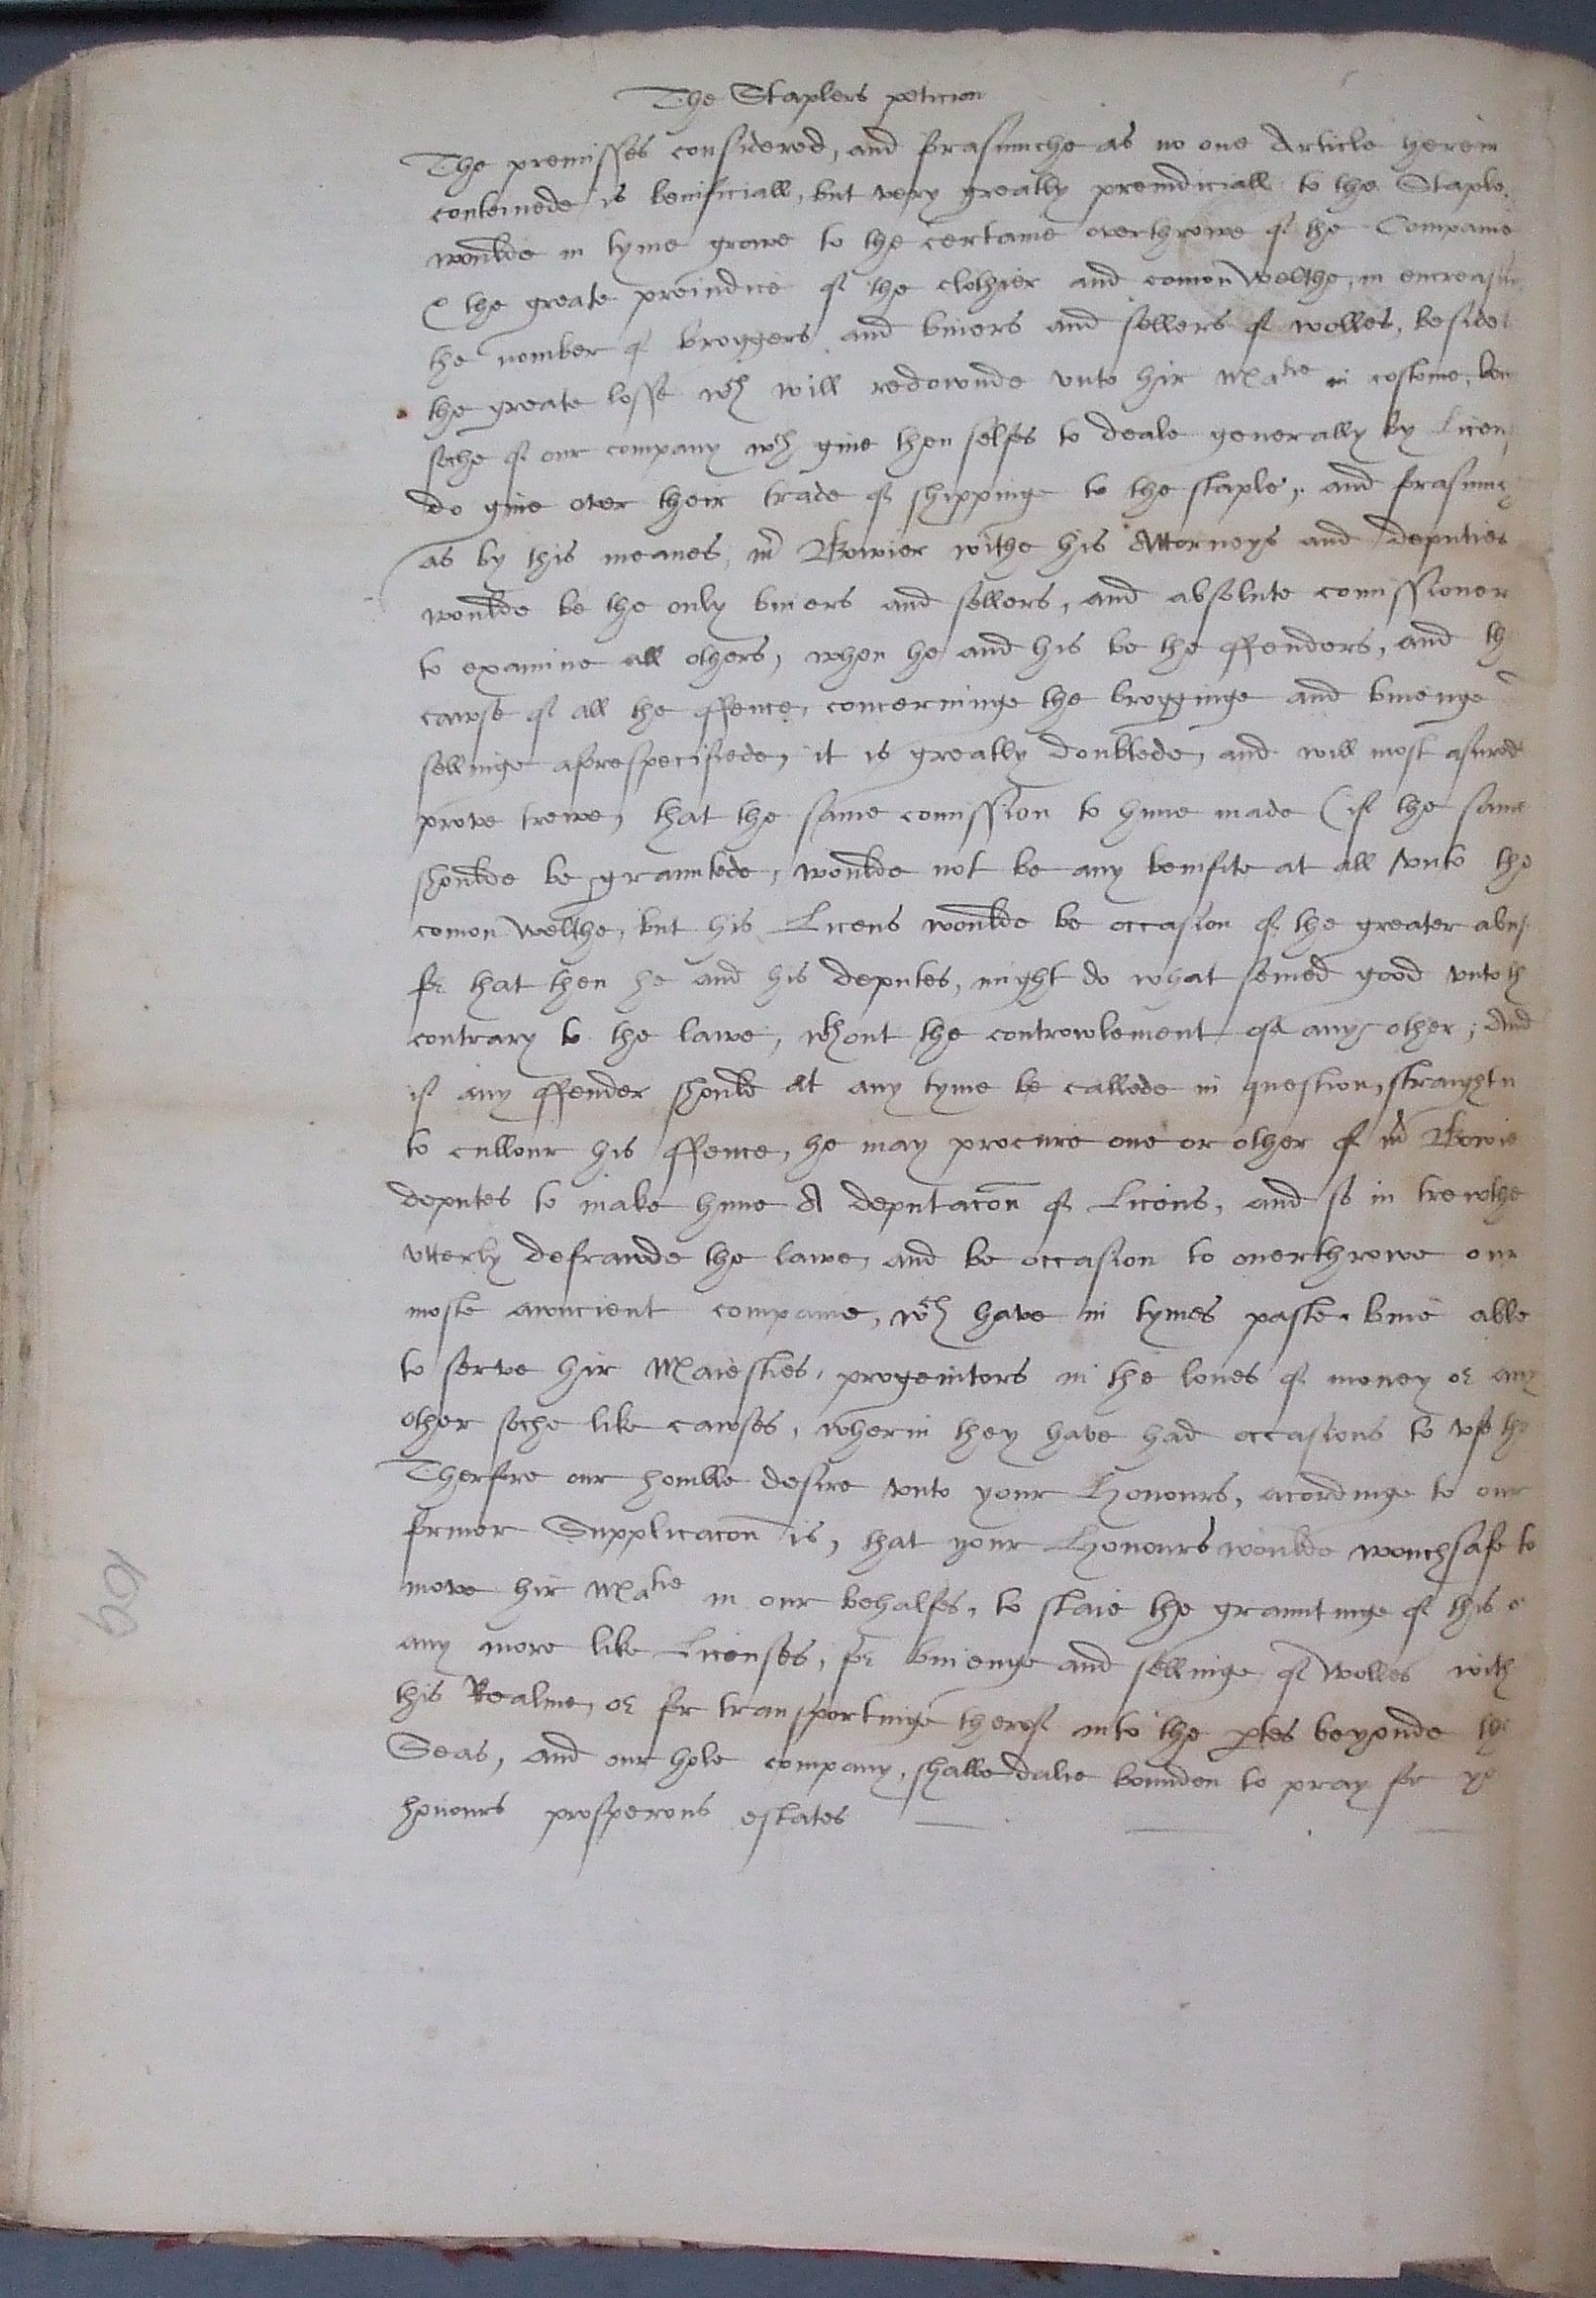 The Staplers peticion
The premisses considered, and forasmuche as no one Article herein
conteinede is benificiall, but very greatly preiudiciall to the Staple,
woulde in tyme growe to the certaine overthrowe of the Companie
& the greate preiudice of the clothier and comon welthe, in encreasin
the nomber of broggers and buiers and sellers of wolles, besides
the greate losse wch will redownde unto hir Matie in costome,
soche of our company wch give them selfes to deale generally by Licen
do give over their trade of shippinge to the staple, and forasmuch
as by this meanes, mr Bowier withe his Attorneys and deputies
woulde be the only buiers and sellers, and absolute comissioner
to examine all others, when he and his be the offenders, and th
cawse of all the offence, concerninge the brogginge and buienge
sellinge aforespecifiede, it is greatly doubtede, and will most asured
prove trewe, that the same comission to hime made (if the same
shoulde be grauntede, woulde not be any benifite at all unto the
comon welthe, but his Licens woulde be occasion of the greater abus
for that then he and his deputes, might do what semed good unto th
contrary to the lawe, wthout the controwlement of any other; And
if any offender should At any tyme be callede in question, straught
to cullour his offence, he may procure one or other of mr Bowie
deputes to make hime A deputacon of Licens, and so in trewthe
utterly defrawde the lawe, and be occasion to overthrowe our
moste awncient companie, wch have in tymes paste bine able
to serve hir Maiesties progenitors in the lones of money or any
other soche like cawses, wherin they have had occasions to use th
Therfore our homble desire unto your Honours, acordinge to our
former Supplicacon is, that your Honours woulde wouchsafe to
move hir Matie in our behalfes, to staie the grauntinge of this o
any more like Licenses, for buienge and sellinge of Wolles with
this Realme, or for transportinge therof into the ptes beyonde the
Seas, And our hole company, shalbe dalie bounden to pray for yo
honours prosperous estates
69